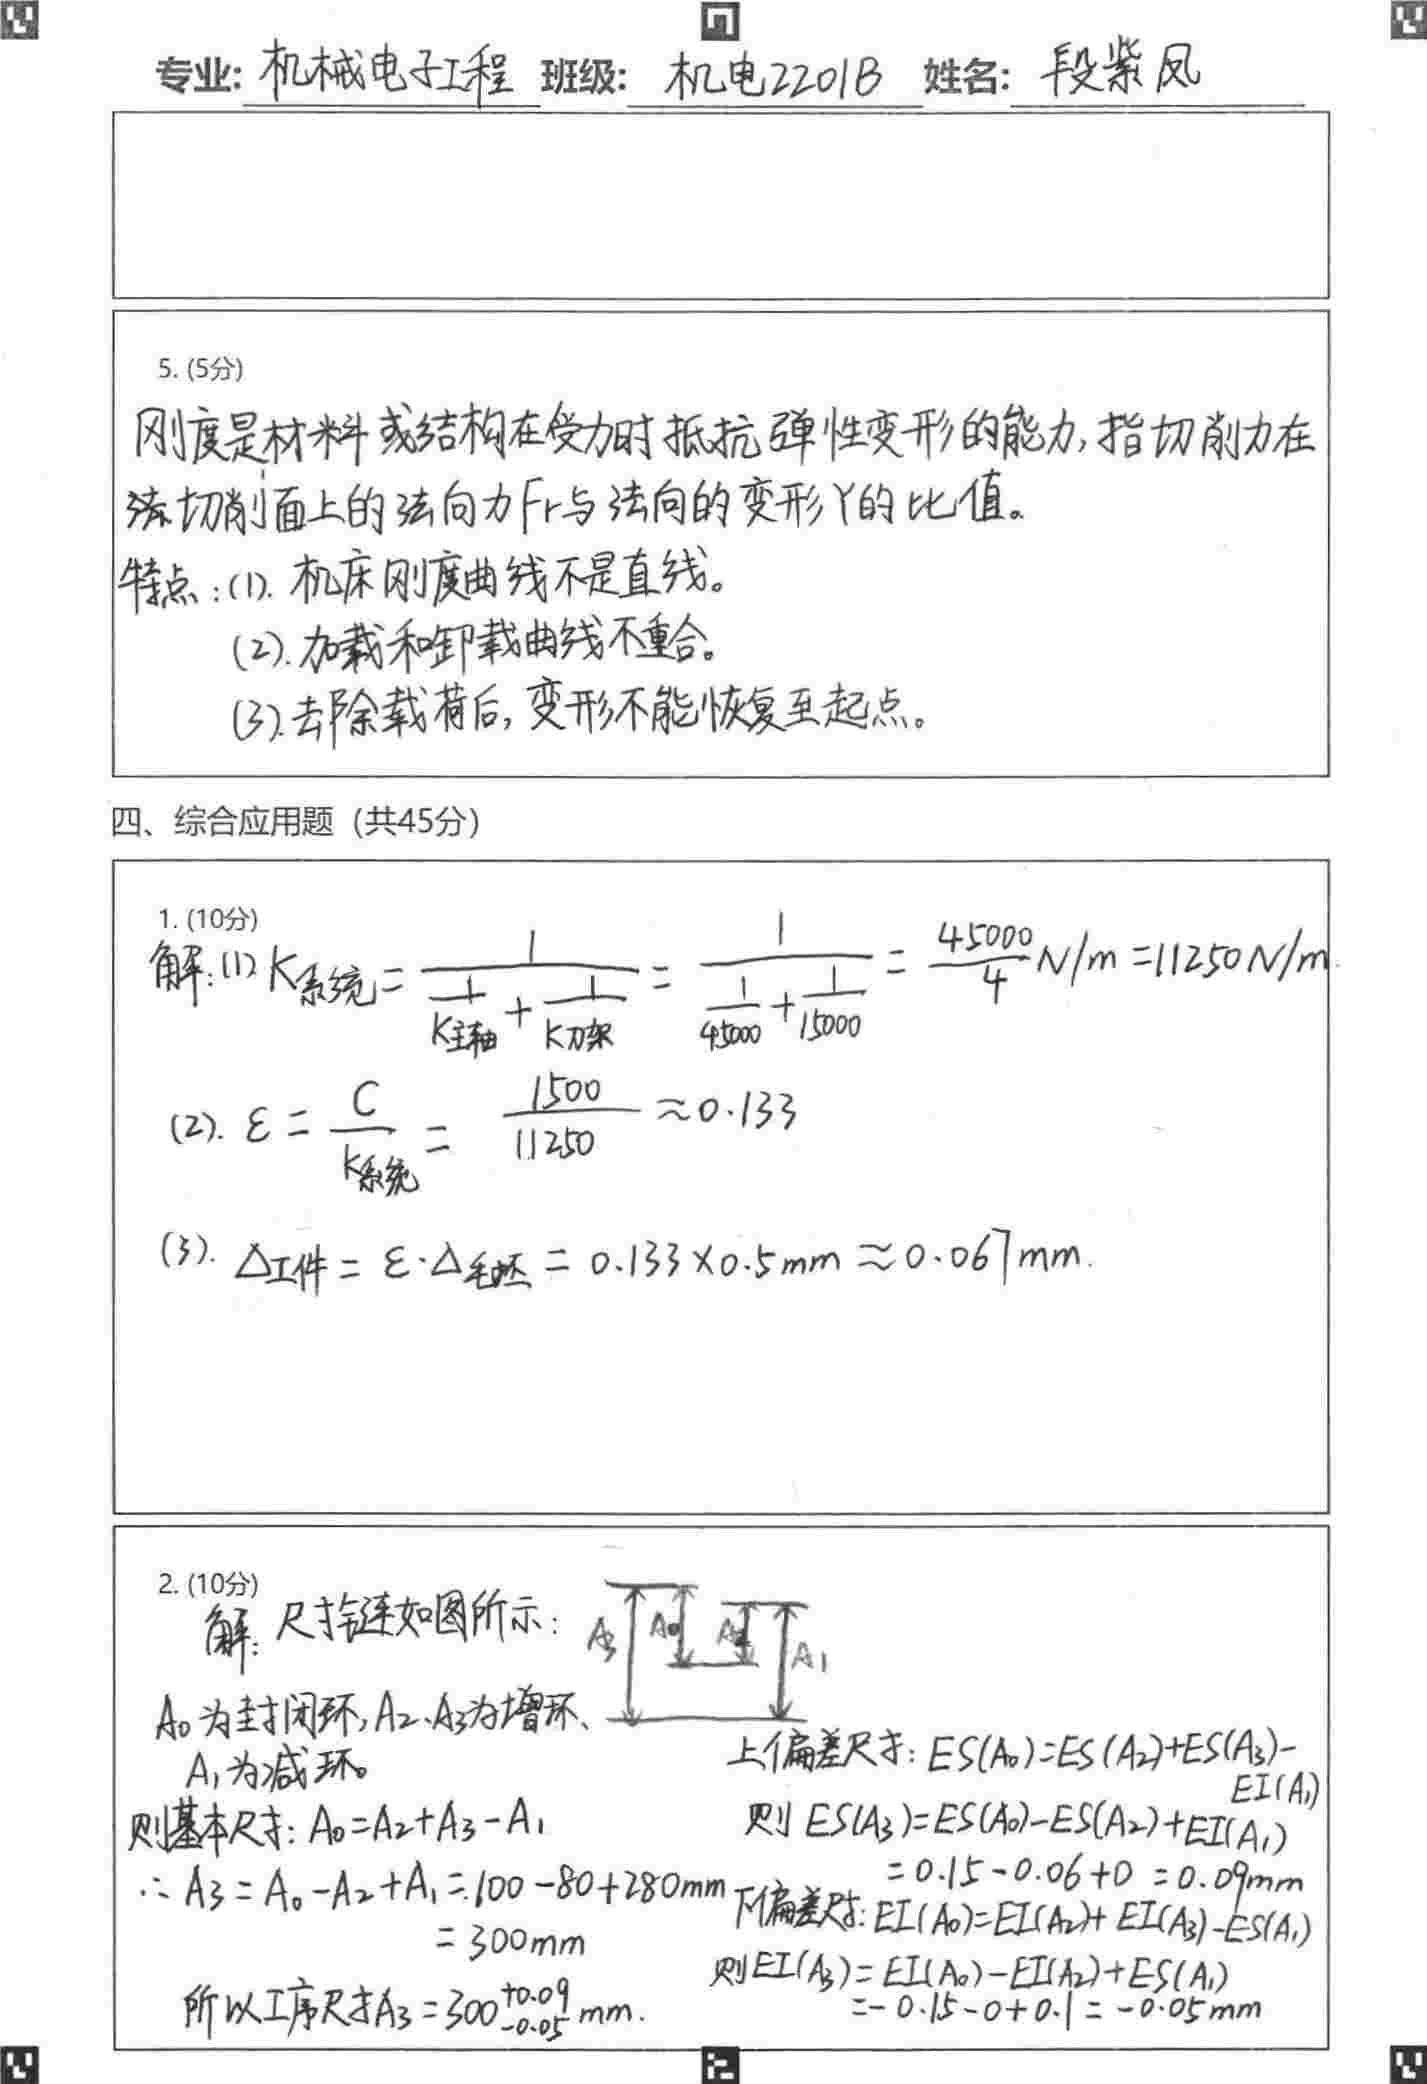 专业: 机械电子工程 班级: 机电2201B 姓名: 段紫凤
5. (5分)
刚度是材料或结构在受力时抵抗弹性变形的能力,指切削力在
切削面上的法向力Fr与法向的变形Y的比值。
特点:(1). 机床刚度曲线不是直线。
(2). 加载和卸载曲线不重合。
(3). 去除载荷后,变形不能恢复至起点。
四、综合应用题(共45分)
1. (10分)
解:(1) K系统 = 1/(1/K主轴 + 1/K刀架) = 1/(1/45000 + 1/15000) = 45000/4 N/m = 11250N/m.
(2). ε = C/K系统 = 1500/11250 ≈ 0.133
(3). Δ工件 = ε·Δ毛坯 = 0.133×0.5mm ≈ 0.067mm.
2. (10分)
解: 尺寸链如图所示:
A3 A0 A2 A1
A0为封闭环,A2、A3为增环、
A1为减环。
则基本尺寸: A0=A2+A3-A1
∴ A3 = A0-A2+A1 = 100-80+280mm
= 300mm
所以工序尺寸A3 = 300 +0.09 -0.05 mm.
上偏差尺寸: ES(A0)=ES(A2)+ES(A3)-
EI(A1)
则 ES(A3)=ES(A0)-ES(A2)+EI(A1)
= 0.15-0.06+0 = 0.09mm
下偏差尺寸: EI(A0)=EI(A2)+EI(A3)-ES(A1)
则EI(A3)=EI(A0)-EI(A2)+ES(A1)
=-0.15-0+0.1 = -0.05mm